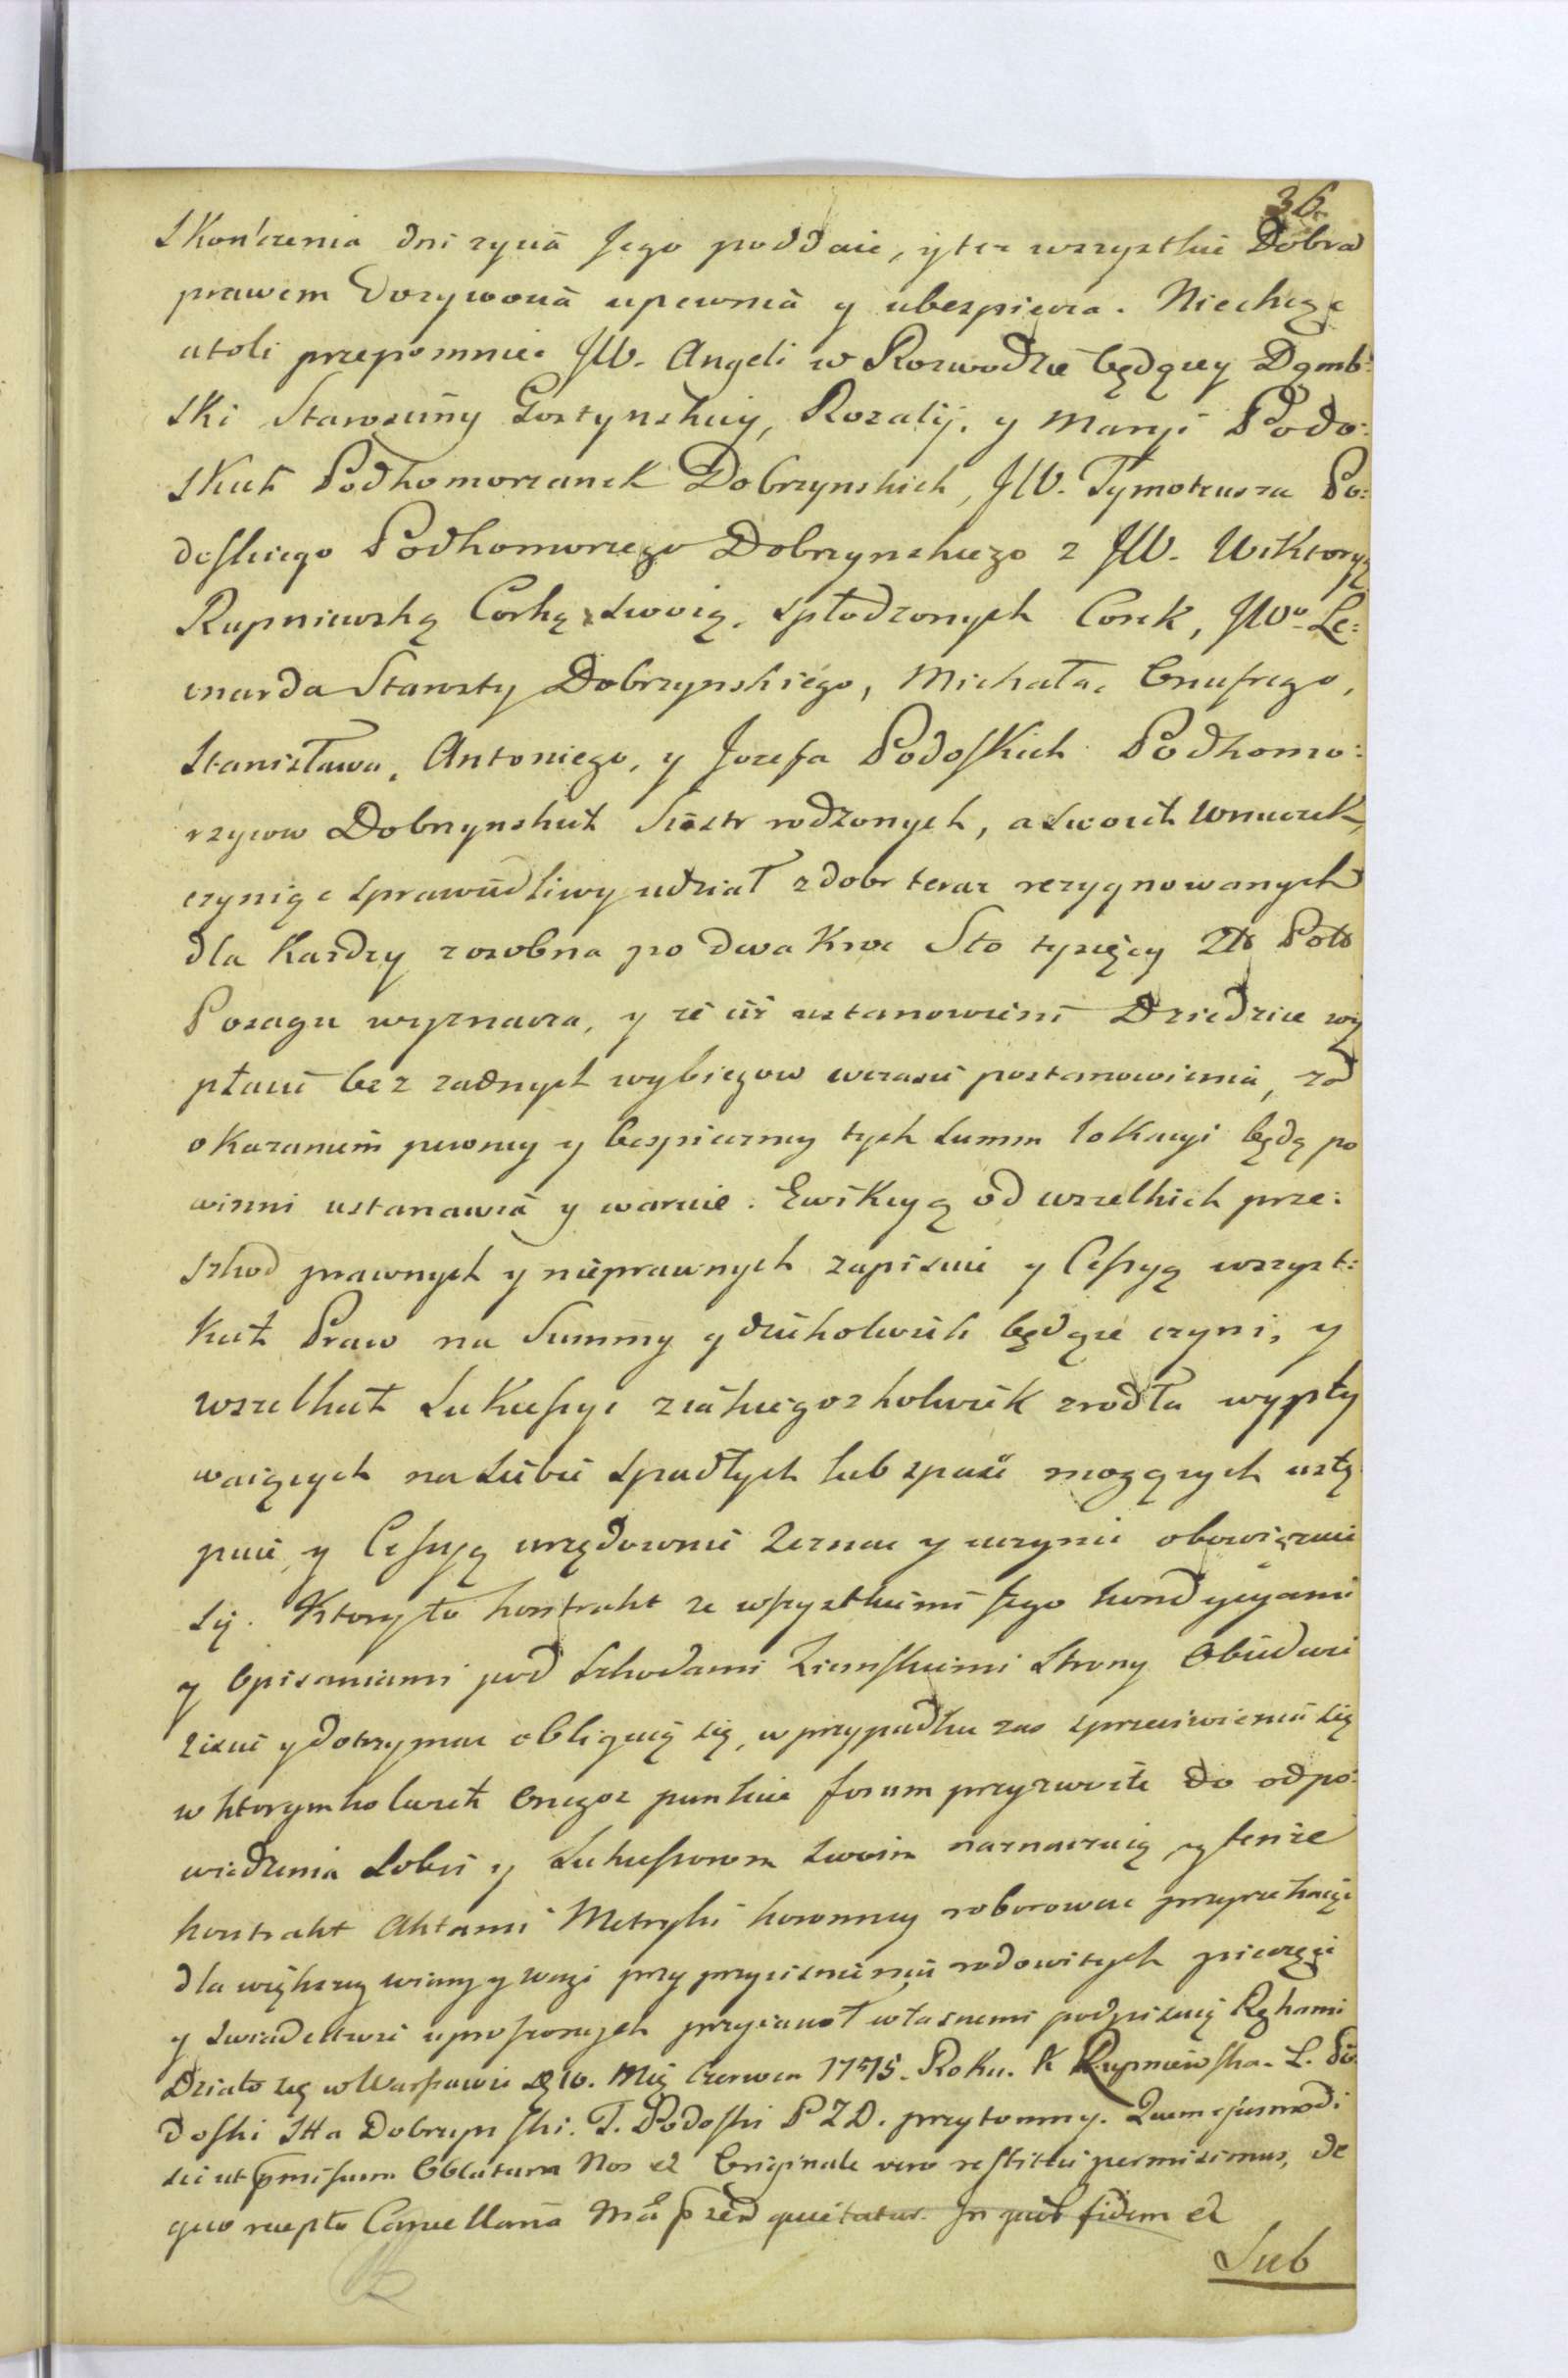 36.
Skończenia dni zycia Jego poddaie, y te wszystkie Dobra
prawem Dozywocia upewnia y ubezpiecza. Niechcąc
atoli przepomniec JW. Angeli w Rozwodzie będącey Dąmb:
ski Starosciny Gostynskiey, Rozalij, y Maryi Podo:
skich Podkomorzanek Dobrzynskich, JW. Tymoteusza Po:
doskiego Podkomorzego Dobrzynskiego z JW. Wiktoryą
Rupniewską Corką swoią, spłodzonych Corek, JWo. Le:
onarda Starosty Dobrzynskiego, Michała, Onufrego,
Stanisława, Antoniego, y Jozefa Podoskich Podkomo:
rzycow Dobrzynskich Siostr rodzonych, a swoich Wnuczek,
czyniąc sprawiedliwy udział z dobr teraz rezygnowanych
dla Kazdey z osobna po dwa Kroc Sto tysięcy Złt Polt
Posagu wyznacza, y ze iei ustanowieni Dziedzice wy
płacic bez zadnych wybiegow w czasie postanowienia, za
okazaniem pewney y bespieczney tych summ lokacyi będą po
winni ustanawia y waruie. Ewikcyą od wszelkich prze:
szkod prawnych y nieprawnych zapisuie y Cessyą wszyst:
kich Praw na Summy gdziekolwiek będące czyni, y
wszelkich Sukcessyi z iakiegozkolwiek zrodła wypły
waiących na siebie spadłych lub spasc mogących ustą
pic, y Cessyą urzędownie zeznac y uczynic obowiązuie
się. Ktory to kontrakt ze wszystkiemi Jego kondycyami
y Opisaniami pod szkodami Ziemskiemi Strony Obiedwie
ziscic y dotrzymac obliguią się, w przypadku zas sprzeciwienia się
w ktorymkolwiek Onegoz punkcie forum przyzwoite do odpo:
wiedzenia sobie y Sukcessorom swoim naznaczaią, y tenze
kontrakt Aktami Metryki koronney roborowac przyrzekaiąc
dla większey wiary y wagi przy przycisnieniu rodowitych pieczęci
y swiadectwie uproszonych przyiacioł własnemi podpisuią Rękami
Działo się w Warszawie d. 10. Mcą Czerwca 1775. Roku. K Rupniewska. L. Po
doski Sta Dobrzynski. T. Podoski P Z D. przytomny. Quem ejusmodi
sic ut pmissum Oblatum Nos et Originale vero restitui permisimus, de
quo recepto Cancellaria quietatur. In quor fidem et
Sub